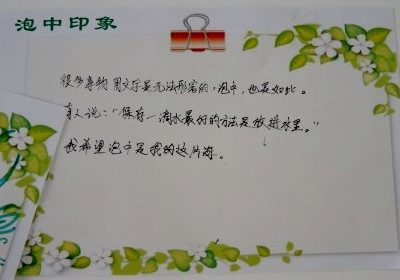 泡中印象
很多事物用文字是无法形容的，泡中，也是如此。
有人说：“保存一滴水最好的方法是放进水里。”
我希望泡中是我的这片海。